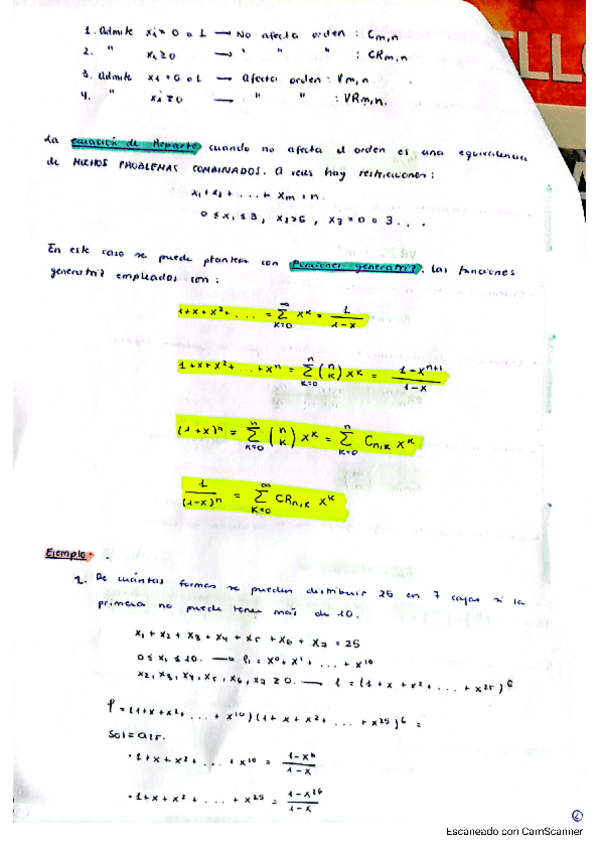 1. Admite xi = 0 o 1 → No afecta orden : Cm,n
2. " xi ≥ 0 → " " " : CRm,n
3. Admite xi = 0 o 1 → afecta orden : Vm,n
4. " xi ≥ 0 → " " : VRm,n.
La ecuación de Reparto cuando no afecta el orden es una equivalencia
de MUCHOS PROBLEMAS COMBINADOS. A veces hay restricciones:
x1+x2+ ... + xm = n.
En este caso se puede plantear con funciones generatriz. Las funciones
generatriz empleadas son:
1+x+x²+ ... = ∑_{k=0}^{∞} x^k = 1/(1-x)
1+x+x²+ ... +x^n = ∑_{k=0}^{n} (n k) x^k = (1-x^{n+1})/(1-x)
(1+x)^n = ∑_{k=0}^{n} (n k) x^k = ∑_{k=0}^{n} C_{n,k} x^k
1/(1-x)^n = ∑_{k=0}^{∞} CR_{n,k} x^k
Ejemplo.
1. De cuántas formas se pueden distribuir 25 en 7 cajas si la
primera no puede tener más de 10.
x1 + x2 + x3 + x4 + x5 + x6 + x7 = 25
0 ≤ x1 ≤ 10. → f1 = x^0 + x^1 + ... + x^10
x2, x3, x4, x5, x6, x7 ≥ 0. → f = (1 + x + x² + ... + x^25)^6
f = (1+x+x²+ ... + x^10)(1+x+x²+ ... + x^25)^6 =
Sol = a25.
· 1+x+x²+ ... + x^10 = (1-x^11)/(1-x)
· 1+x+x²+ ... + x^25 = (1-x^26)/(1-x)
6
Escaneado con CamScanner